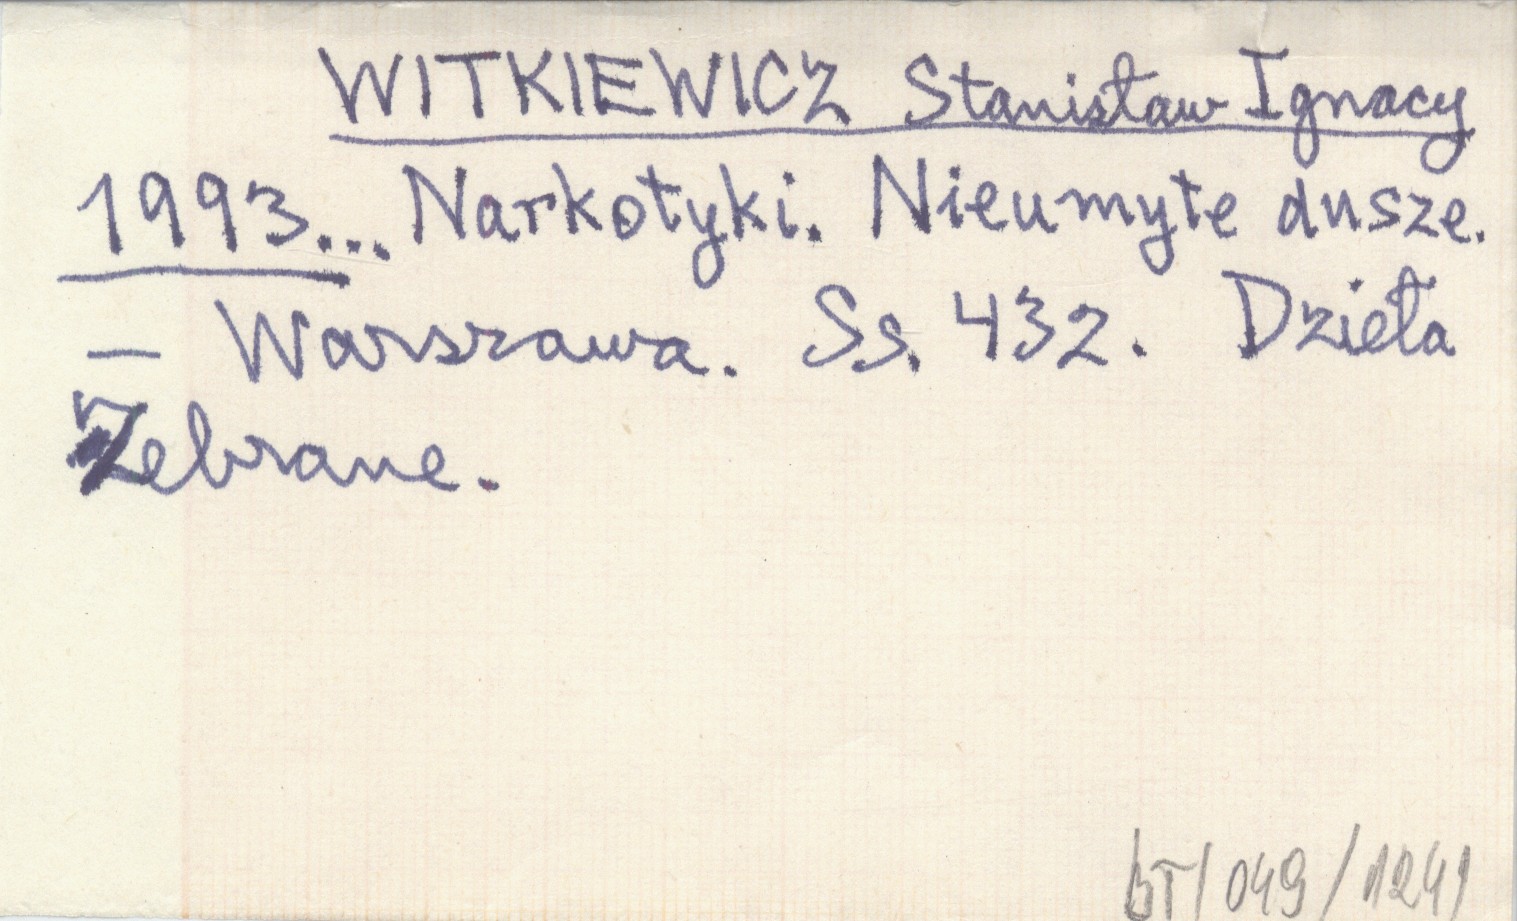 WITKIEWICZ Stanisław Ignacy
1993... Narkotyki. Nieumyte dusze.
— Warszawa. Ss. 432. Dzieła
Zebrane.
BT/049/1241